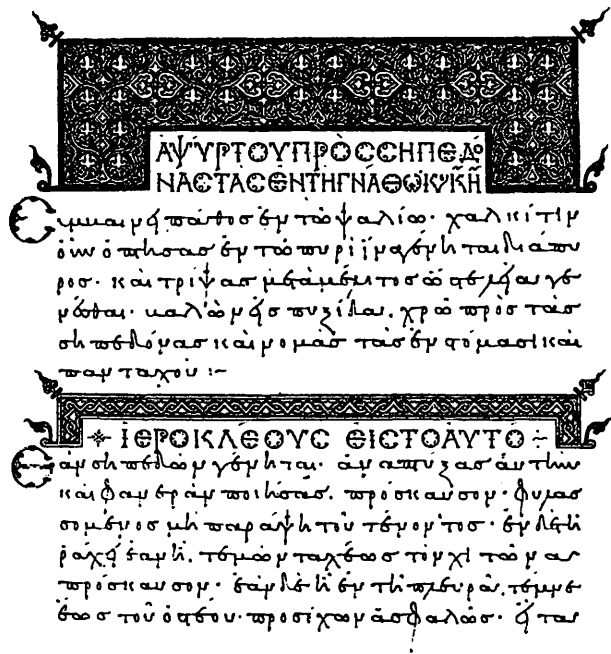 ἈΨΎΡΤΟΥ ΠΡῸC CΗΠΕΔΌ
ΝΑC ΤΑC ΕΝ ΤΗ ΓΝΆΘΩ
Συμβαίνει πάθος ἐν τῶ ψαλίω· χαλκίτιν
οὖν ὀπτήσας ἐν τῶ πυρὶ ἵνα γένηται διάπυ
ρος· καὶ τρίψας μετὰ μέλιτος ὥστε λείαν γε
νέσθαι· καὶ βαλὼν εἰς πυξίδα, χρῶ πρὸς τὰς
σηπεδόνας καὶ νομὰς τὰς ἐν στόμασι καὶ
πανταχοῦ :~
ἹΕΡΟΚΛΈΟΥC ΕἸC ΤΟ ΑΥΤΟ
Ἐὰν σηπεδὼν γένηται· ἀναπτύξας αὐτὴν
καὶ φανερὰν ποιήσας, πρόσκαυσον· φυλασ
σόμενος μὴ παράψη τοῦ τένοντος· ἐν δὲ τῆ
ράχει ἐὰν ἦ, τεμὼν ταχέως τὸν
πρόσκαυσον· ἐὰν δὲ ἦ ἐν τῆ πλευρᾶ, τέμνε
ἕως τοῦ ὀστέου· προσέχων ἀσφαλῶς·